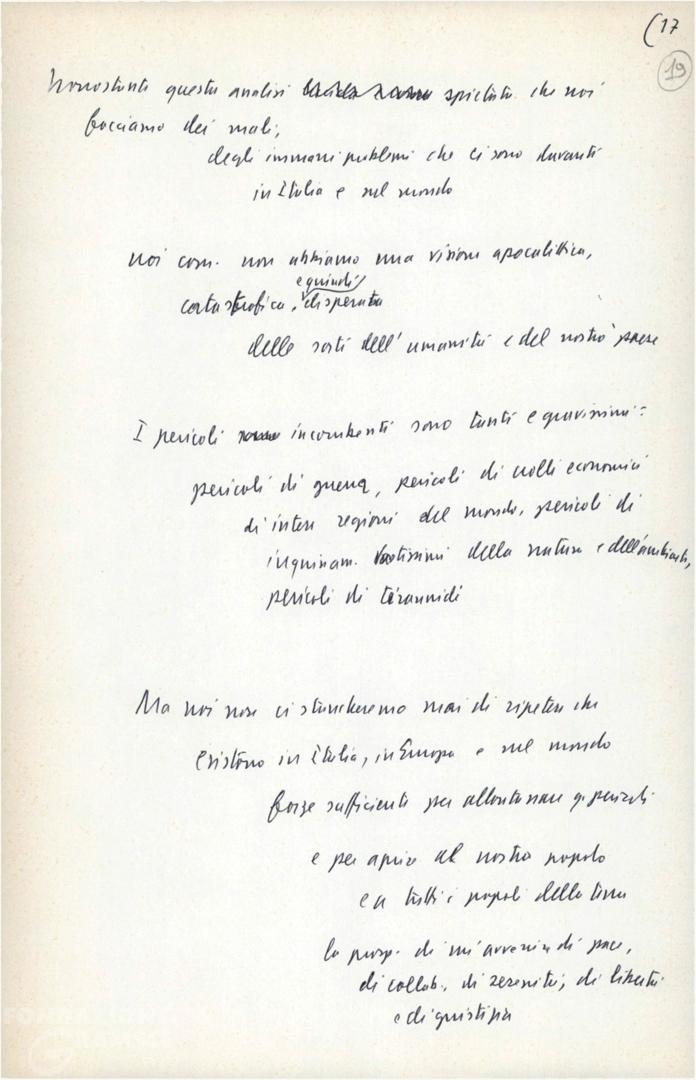 (17
19
Nonostante questa analisi spietata che noi
facciamo dei mali,
degli immani problemi che ci sono davanti
in Italia e nel mondo
noi com. non abbiamo una visione apocalittica,
e quindi
catastrofica, disperata
delle sorti dell'umanità e del nostro paese
I pericoli incombenti sono tanti e gravissimi:
pericoli di guerra, pericoli di crolli economici
di intere regioni del mondo, pericoli di
inquinam. vastissimi della natura e dell'ambiente,
pericoli di tirannidi
Ma noi non ci stancheremo mai di ripetere che
esistono in Italia, in Europa e nel mondo
forze sufficienti per allontanare q. pericoli
e per aprire al nostro popolo
e a tutti i popoli della terra
la prosp. di un'avvenire di pace,
di collab., di serenità, di libertà
e di giustizia